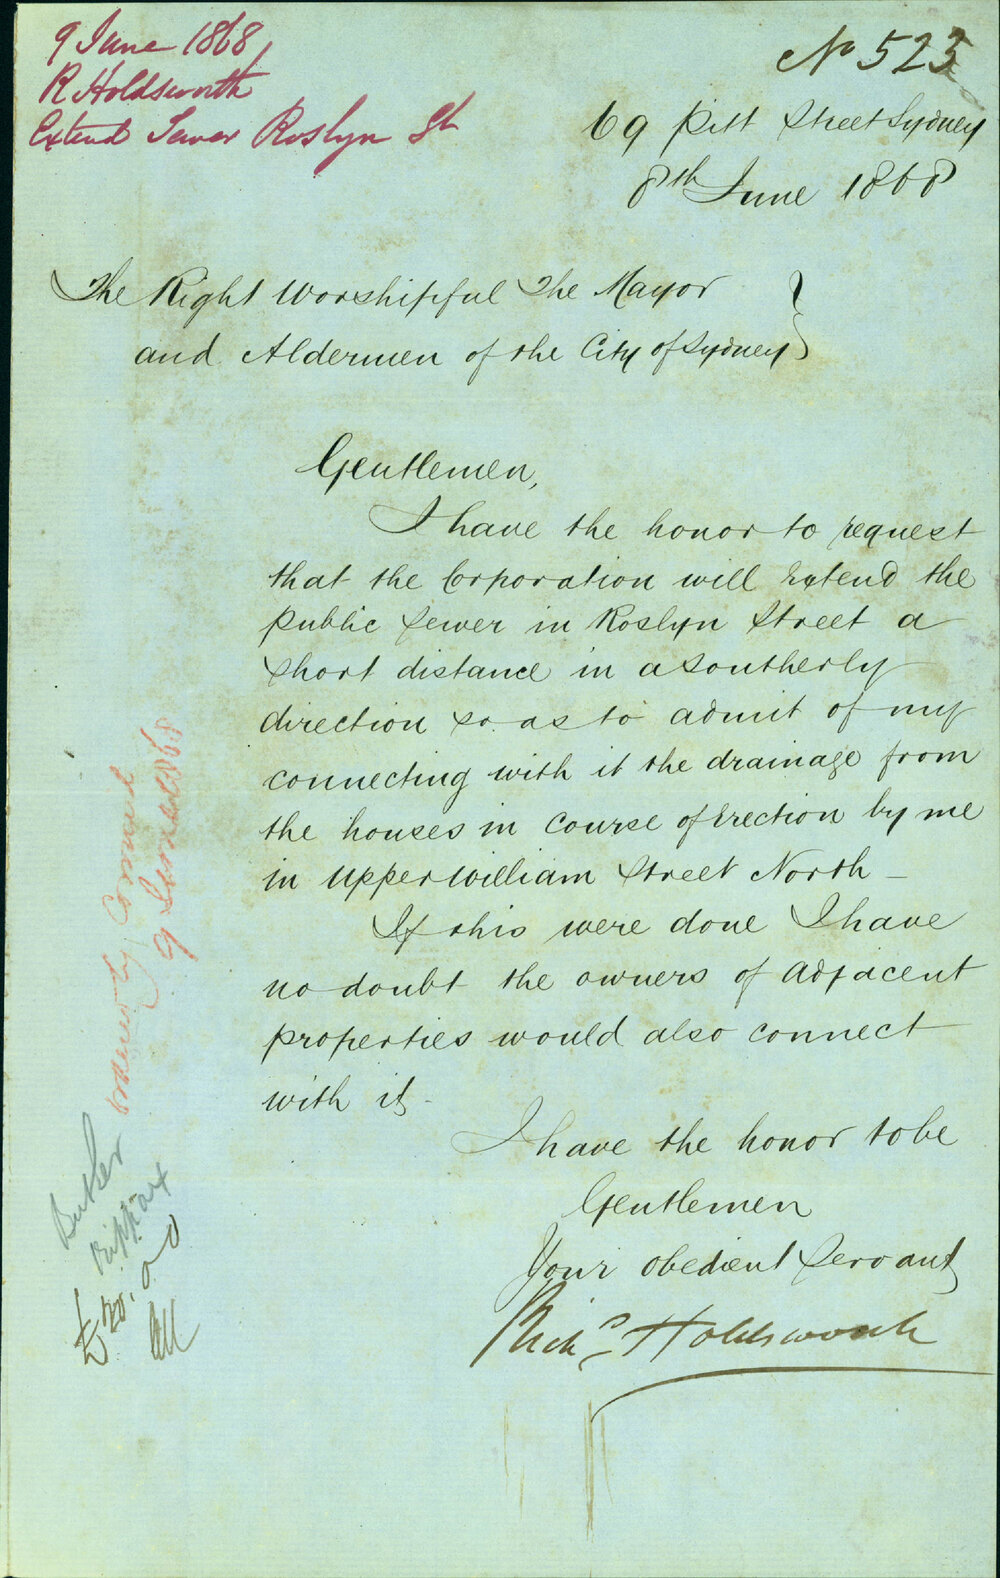 9 June 1868
R Holdsworth
Extend Sewer Roslyn St
No 523
69 Pitt Street Sydney
8th June 1868
The Right Worshipful The Mayor
and Aldermen of the City of Sydney
Gentlemen,
I have the honor to request
that the Corporation will Extend the
public Sewer in Roslyn Street a
short distance in a Southerly
direction so as to admit of my
connecting with it the drainage from
the houses in course of Erection by me
in Upper William Street North -
If this were done I have
no doubt the owners of adjacent
properties would also connect
with it -
I have the honor to be
Gentlemen
Your obedient Servant
Richd Holdsworth
9 June 1868